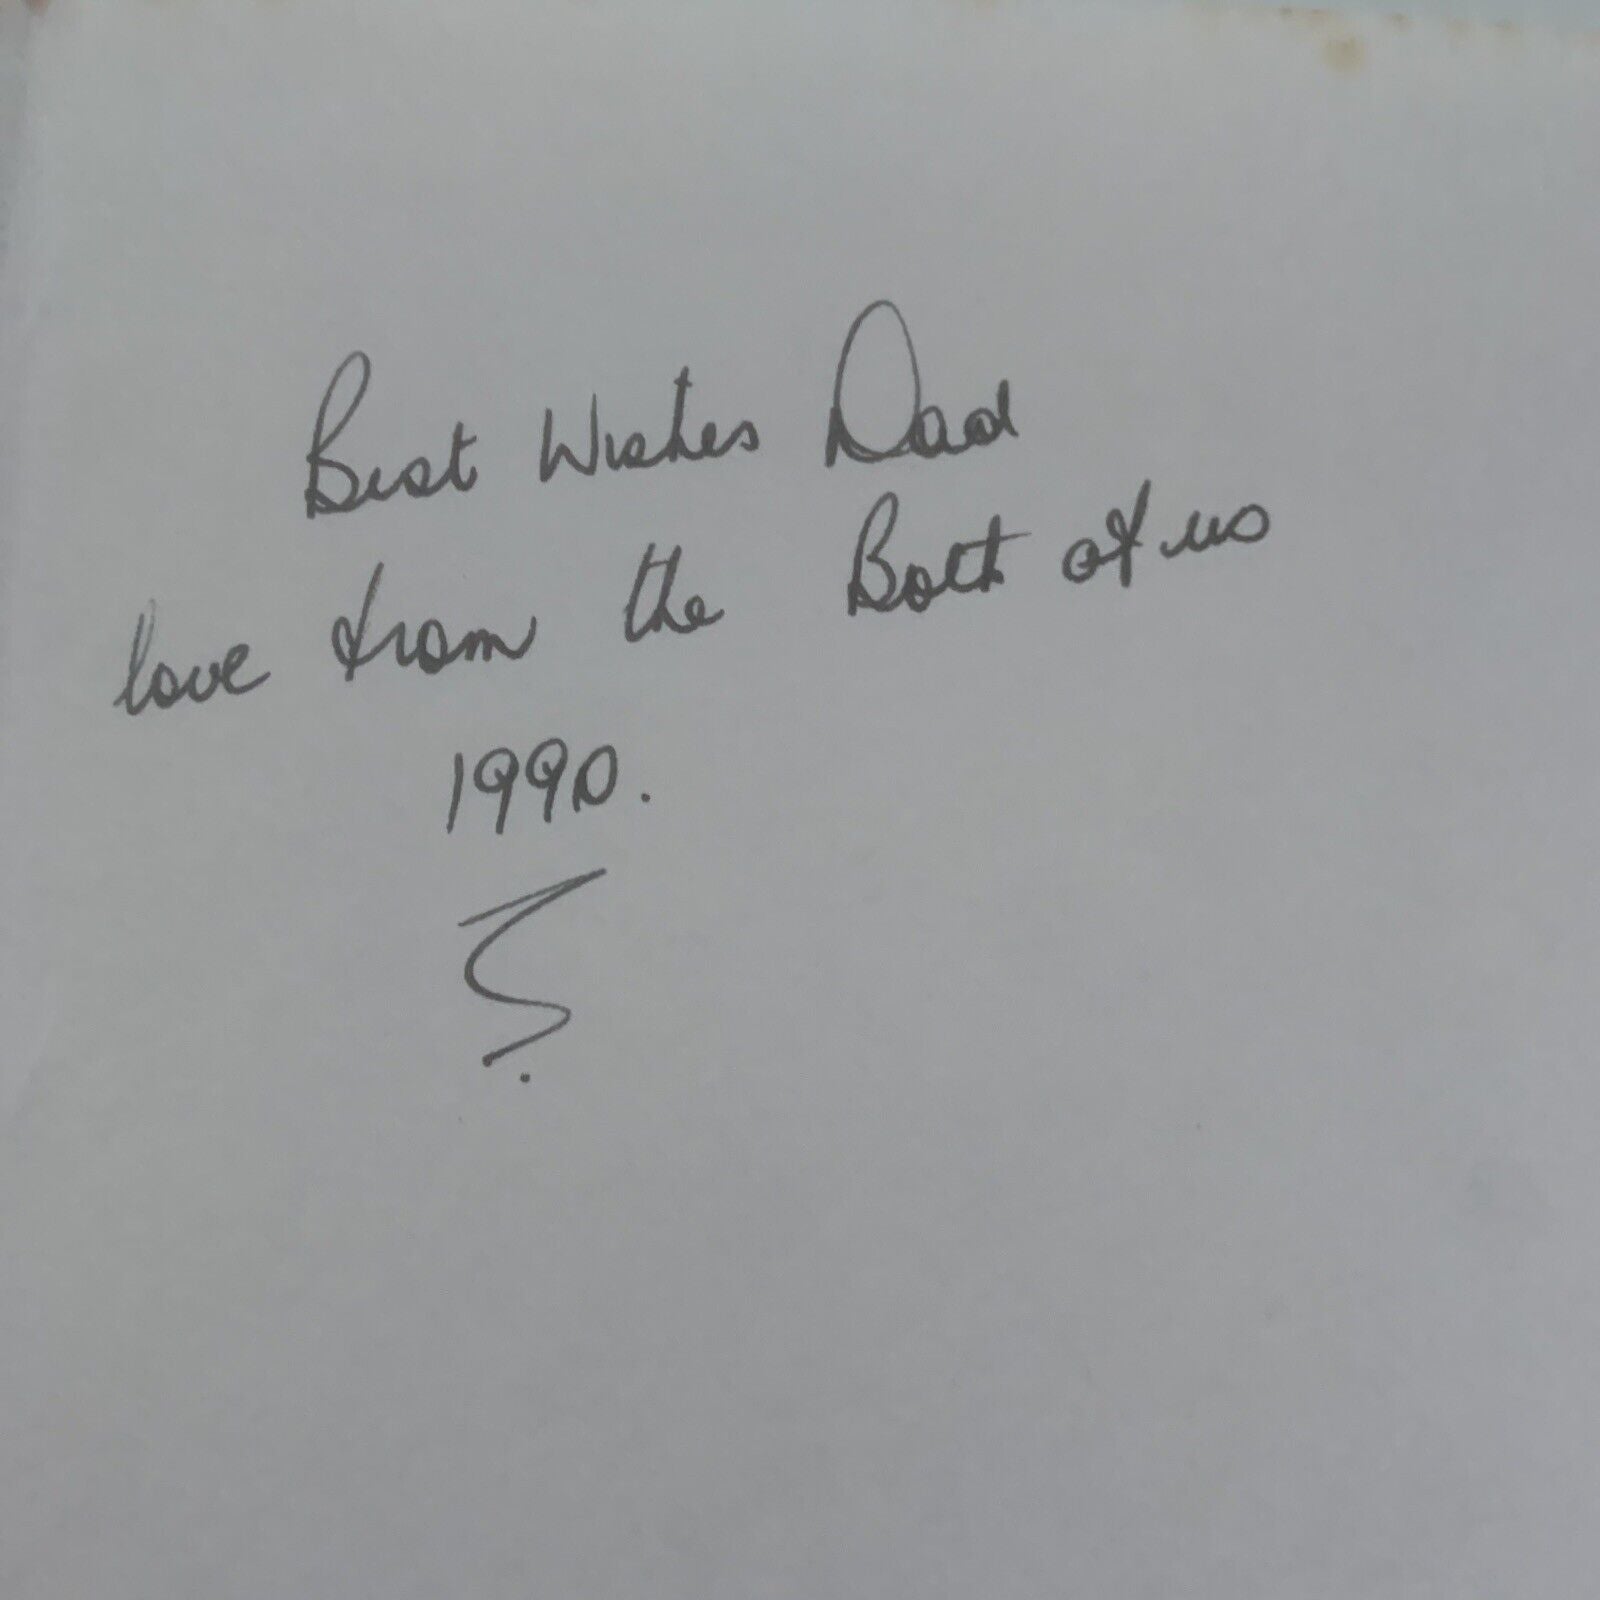 Best Wishes Dad
love from the Both of us
1990.